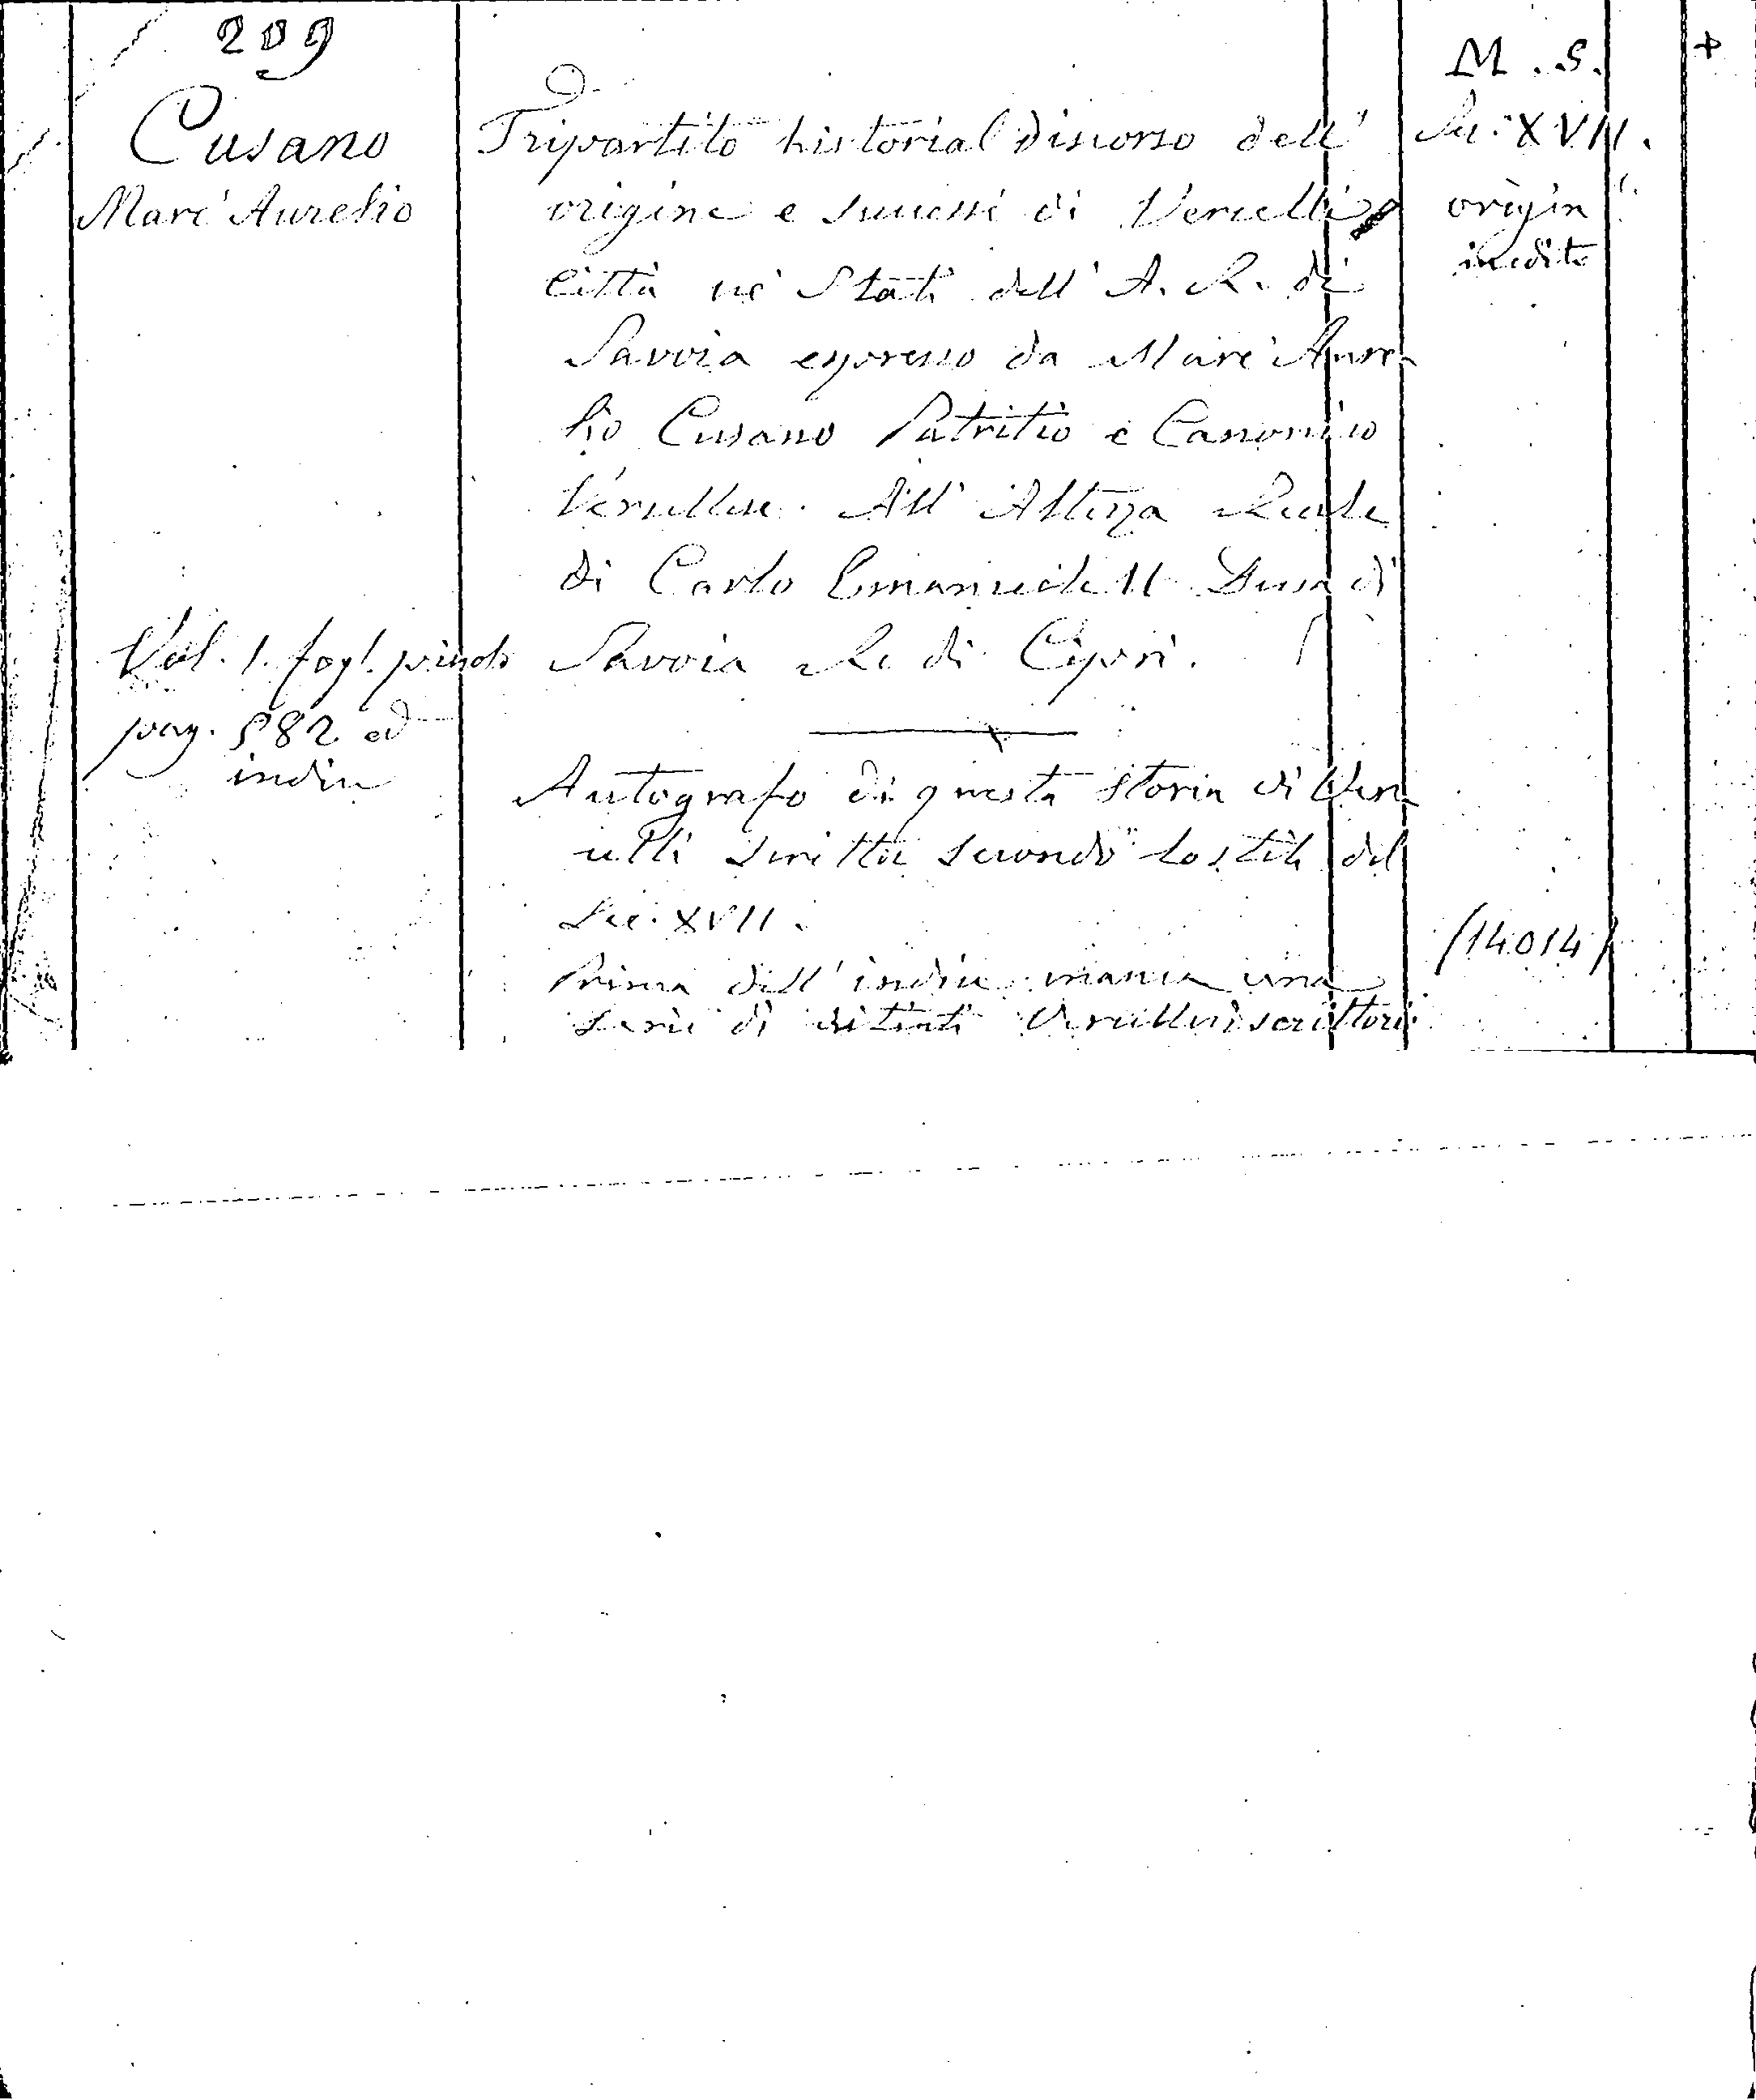 209
Cusano
Marc' Aurelio
Vol. 1. fogl. picolo
pag. 582 ed
indice
Tripartito historial discorso dell'
origine e successi di Vercelli
Città ne' Stati dell' A. R. di
Savoia espresso da Marc' Aure-
lio Cusano Patritio e Canonico
Vercellese. All' Altezza Reale
di Carlo Emanuele II Duca di
Savoia Re di Cipri.
Autografo di questa storia di Ver-
celli scritta secondo lo stile del
Sec. XVII.
Prima dell' indice manca una
serie di distinti Vercellesi scrittori
M. S.
Sec. XVII.
origin
inedito
(14014)
+